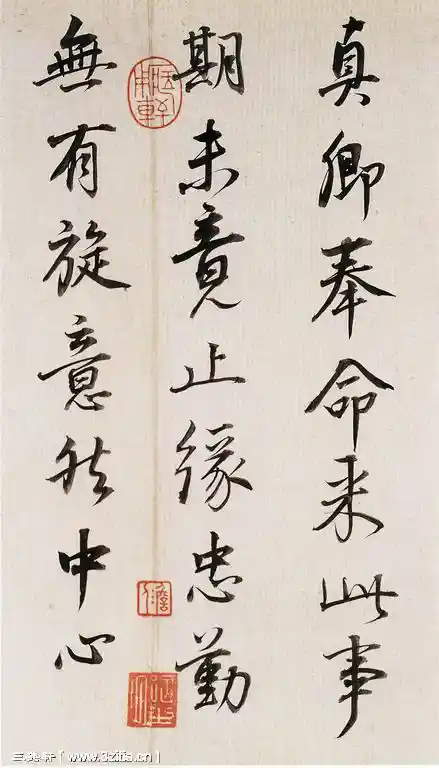 真卿奉命来此事
期未竟止緣忠勤
無有旋意然中心
[www.3zitie.cn]